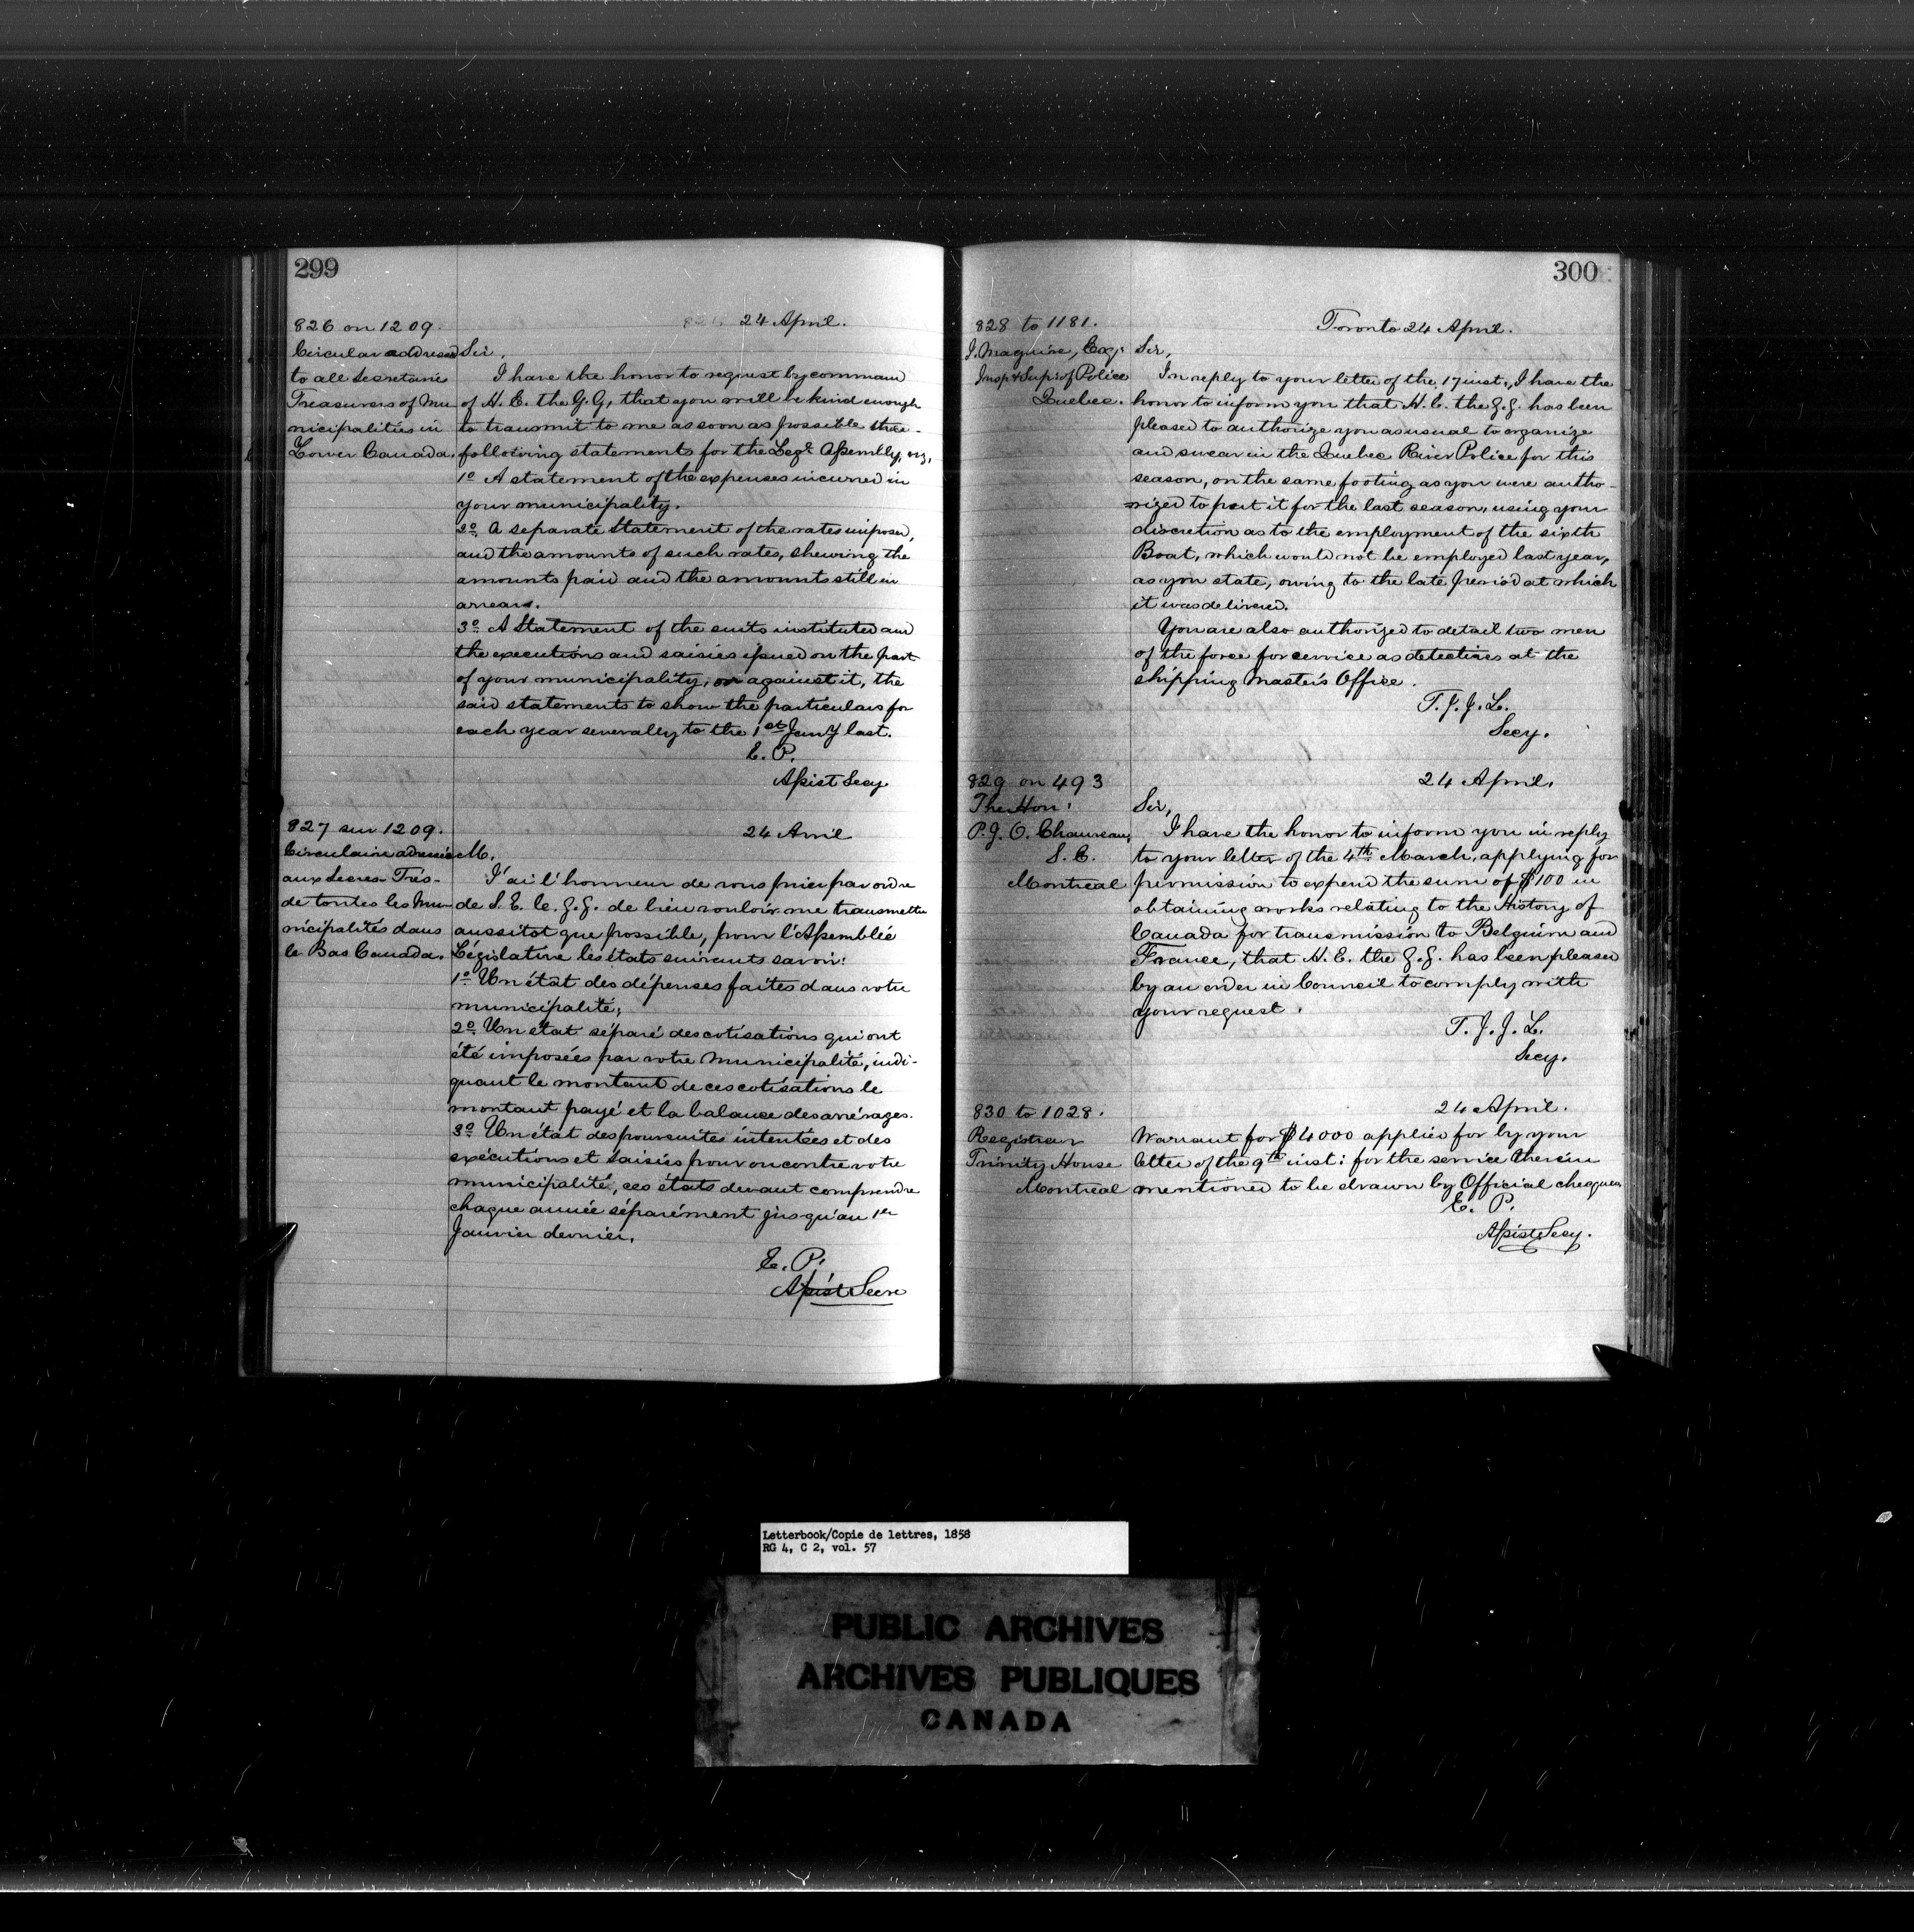 299
826 on 1209.
24 April.
Circular addressed
to all Secretarie
Treasurers of Mu
nicipalities in
Lower Canada.
Sir,
I have the honor to request by command
of H. E. the G. G, that you will be kind enough
to transmit to me as soon as possible the
following statements for the Legve Assembly, viz,
1o A statement of the expenses incurred in
your municipality.
2o A separate Statement of the rates imposed,
and the amounts of such rates, shewing the
amounts paid and the amounts still in
arrears.
3o A Statement of the suits instituted and
the executions and saisies issued on the part
of your municipality, or against it, the
said statements to show the particulars for
each year severally to the 1st Jany last.
E. P.
Assist Secy
827 sur 1209.
24 Avril
Circulaire adressée
aux Secres- Trés-
de toutes les Mu-
nicipalités dans
le Bas Canada.
M.
J'ai l'honneur de vous prier par ordre
de S. E. le. G. G. de bien vouloir me transmettre
aussitot que possible, pour l'Assemblée
Législative les états suivants savoir:
1o Un état des dépenses faites dans votre
municipalité;
2o Un état séparé des cotisations qui ont
été imposées par votre Municipalité, indi-
quant le montant de ces cotisations le
montant payé et la balance des arrérages.
3o Un état des poursuites intentées et des
exécutions et saisies pour ou contre votre
municipalité, ces états devant comprendre
chaque année séparément jusqu'au 1er
Janvier dernier.
E. P.
Assist Secre
300
828 to 1181.
Toronto 24 April.
J. Maguire, Esq,
Insp & Sup: of Police
Quebec.
Sir,
In reply to your letter of the 17 inst., I have the
honor to inform you that H. E. the G. G. has been
pleased to authorize you as usual to organize
and swear in the Quebec River Police for this
season, on the same footing as you were autho-
-rized to put it for the last season, using your
discretion as to the employment of the sixth
Boat, which would not be employed last year,
as you state, owing to the late period at which
it was delivered.
You are also authorized to detail two men
of the force for service as detectives at the
shipping Master's Office.
T. J. J. L.
Secy.
829 on 493
24 April.
The Hon:
P. J. O. Chauveau,
S. E.
Montreal
Sir,
I have the honor to inform you in reply
to your letter of the 4th March, applying for
permission to expend the sum of $100 in
obtaining works relating to the History of
Canada for transmission to Belguim and
France, that H. E. the G. G. has been pleased
by an order in Council to comply with
your request.
T. J. J. L.
Secy.
830 to 1028.
24 April.
Registrar
Trinity House
Montreal
Warrant for $4000 applied for by your
letter of the 9th inst: for the service therein
mentioned to be drawn by Official cheque
E. P.
Assist Secy.
Letterbook/Copie de lettres, 1858
RG 4, C 2, vol. 57
PUBLIC ARCHIVES
ARCHIVES PUBLIQUES
CANADA